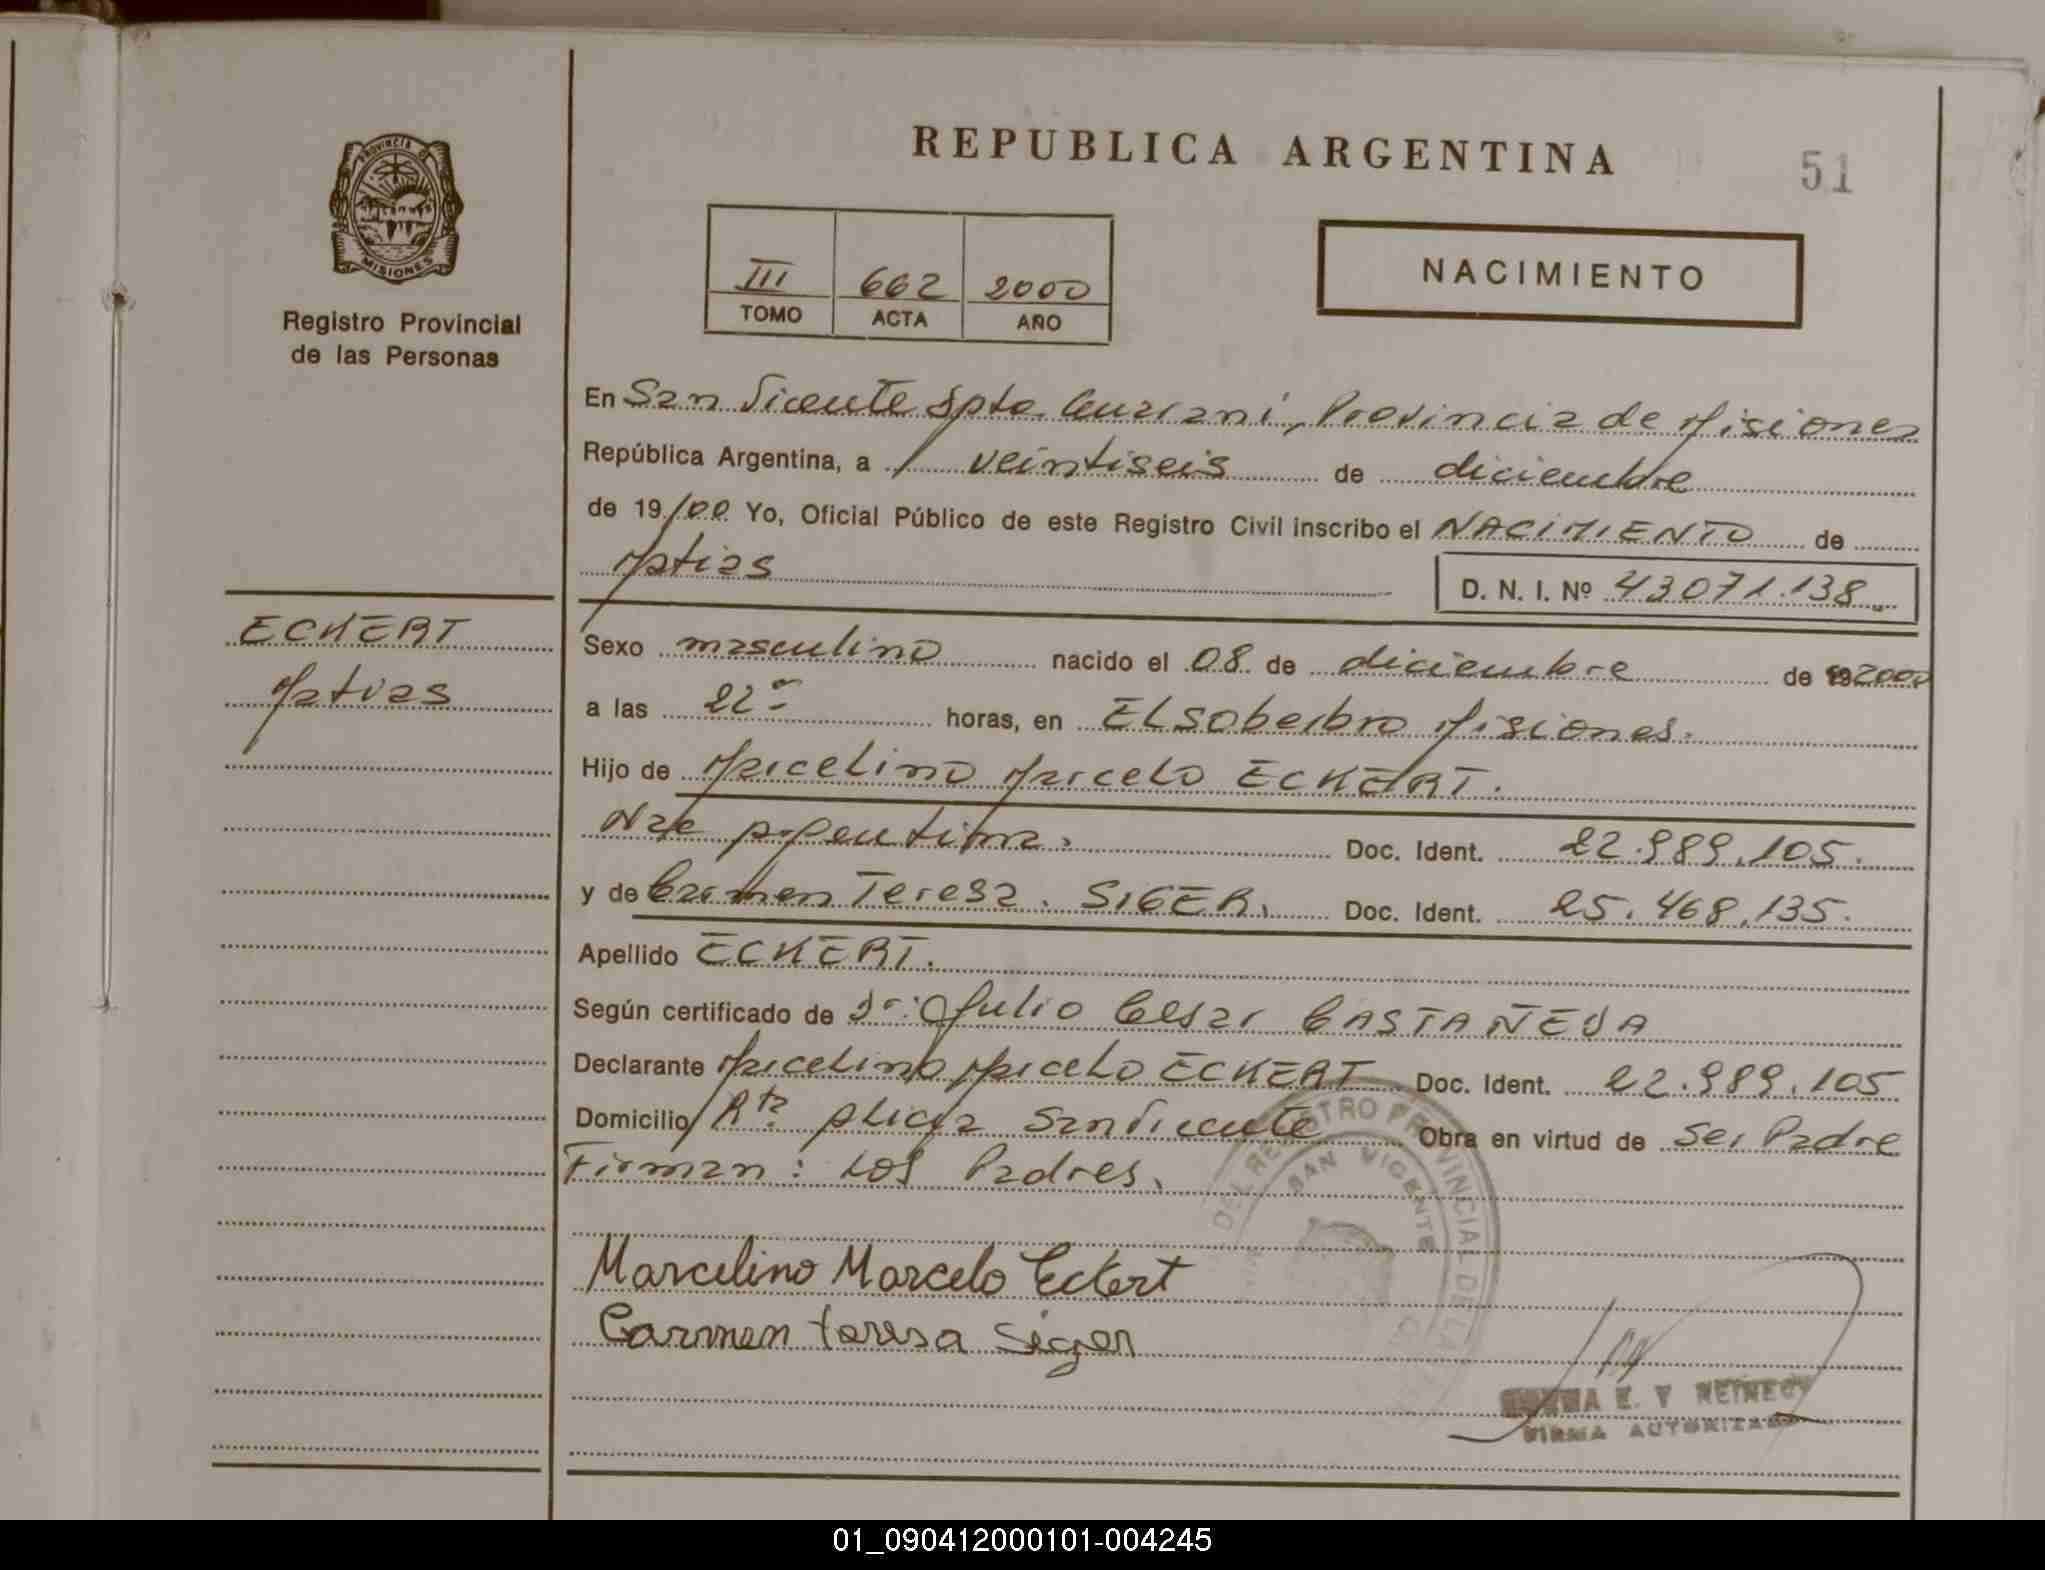 REPUBLICA ARGENTINA
51
PROVINCIA DE
MISIONES
Registro Provincial
de las Personas
III 662 2000
TOMO ACTA AÑO
NACIMIENTO
En San Vicente Dpto. Guaraní, Provincia de Misiones
República Argentina, a veintiseis de diciembre
de 19/00 Yo, Oficial Público de este Registro Civil inscribo el NACIMIENTO de
Matias
D. N. I. Nº 43071.138
ECKERT
Matias
Sexo masculino nacido el 08 de diciembre de 2000
a las 22 horas, en El Soberbio Misiones.
Hijo de Marcelino Marcelo ECKERT.
Nac Argentina. Doc. Ident. 22.989.105.
y de Carmen Teresa. SIGER. Doc. Ident. 25.468.135.
Apellido ECKERT.
Según certificado de Dr: Julio Cesar CASTAÑEDA
Declarante Marcelino Marcelo ECKERT Doc. Ident. 22.989.105
Domicilio Rta. Alicia San Vicente Obra en virtud de Ser Padre
Firman: Los Padres.
DEL REGISTRO PROVINCIAL DE LA
SAN VICENTE
Marcelino Marcelo Eckert
Carmen teresa Siger
E. V REINECK
FIRMA AUTORIZADA
01_090412000101-004245